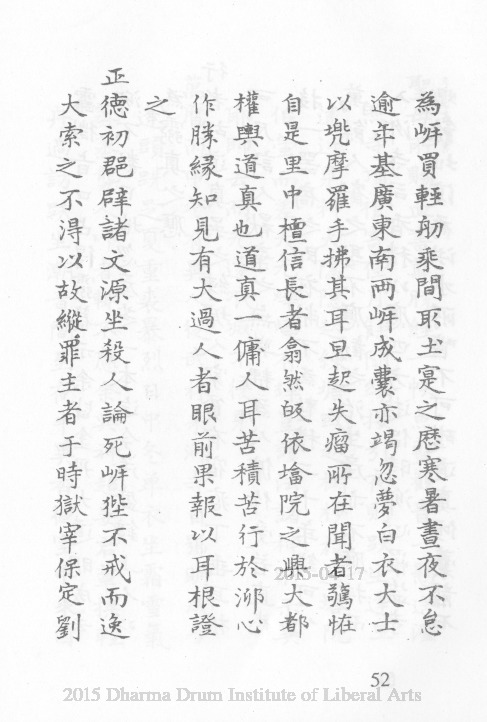 為岍買輕舠乘間取土寔之歷寒暑晝夜不怠
逾年基廣東南両岍成囊亦竭忽夢白衣大士
以兠摩羅手拂其耳旦起失瘤所在聞者驚恠
自是里中檀信長者翕然皈依墖院之興大都
權輿道真也道真一傭人耳苦積苦行於沠心
作勝緣知見有大過人者眼前果報以耳根證
之
正徳初邑辟諸文源坐殺人論死岍狴不戒而逸
大索之不得以故縱罪主者于時獄宰保定劉
2015-04-17
52
2015 Dharma Drum Institute of Liberal Arts